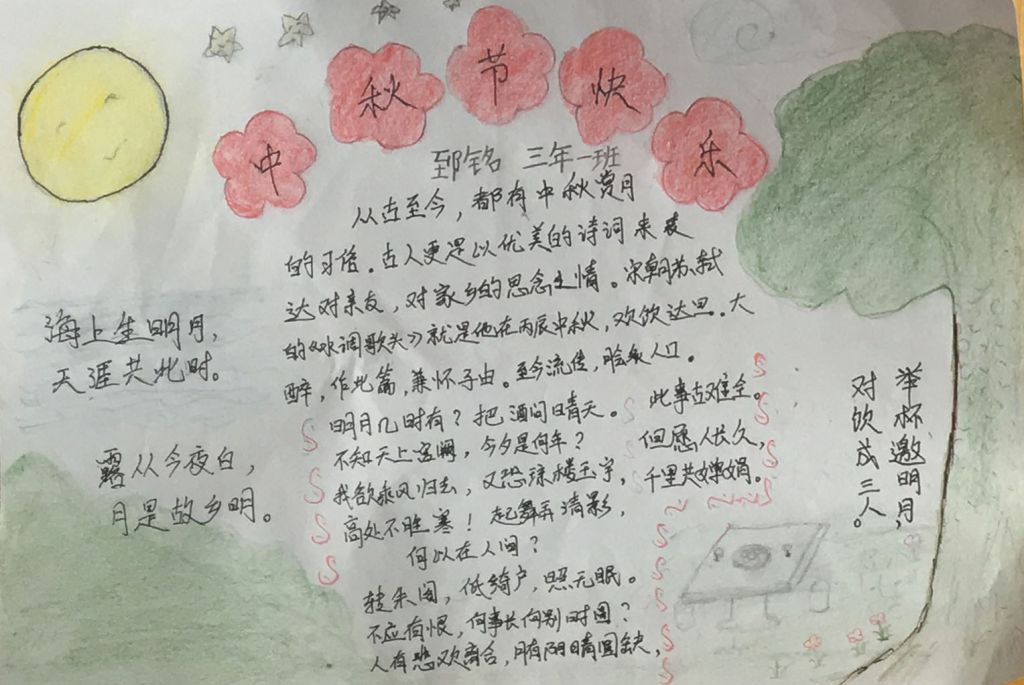 中秋节快乐
郅铭 三年一班
从古至今，都有中秋赏月
的习俗。古人更是以优美的诗词来表
达对亲友，对家乡的思念之情。宋朝苏轼
的《水调歌头》就是他在丙辰中秋，欢饮达旦。大
醉，作此篇，兼怀子由。至今流传，脍炙人口。
明月几时有？把酒问晴天。
不知天上宫阙，今夕是何年？
我欲乘风归去，又恐琼楼玉宇，
高处不胜寒！起舞弄清影，
何以在人间？
转朱阁，低绮户，照无眠。
不应有恨，何事长向别时圆？
人有悲欢离合，月有阴晴圆缺，
此事古难全。
但愿人长久，
千里共婵娟。
海上生明月，
天涯共此时。
露从今夜白，
月是故乡明。
举杯邀明月，
对饮成三人。